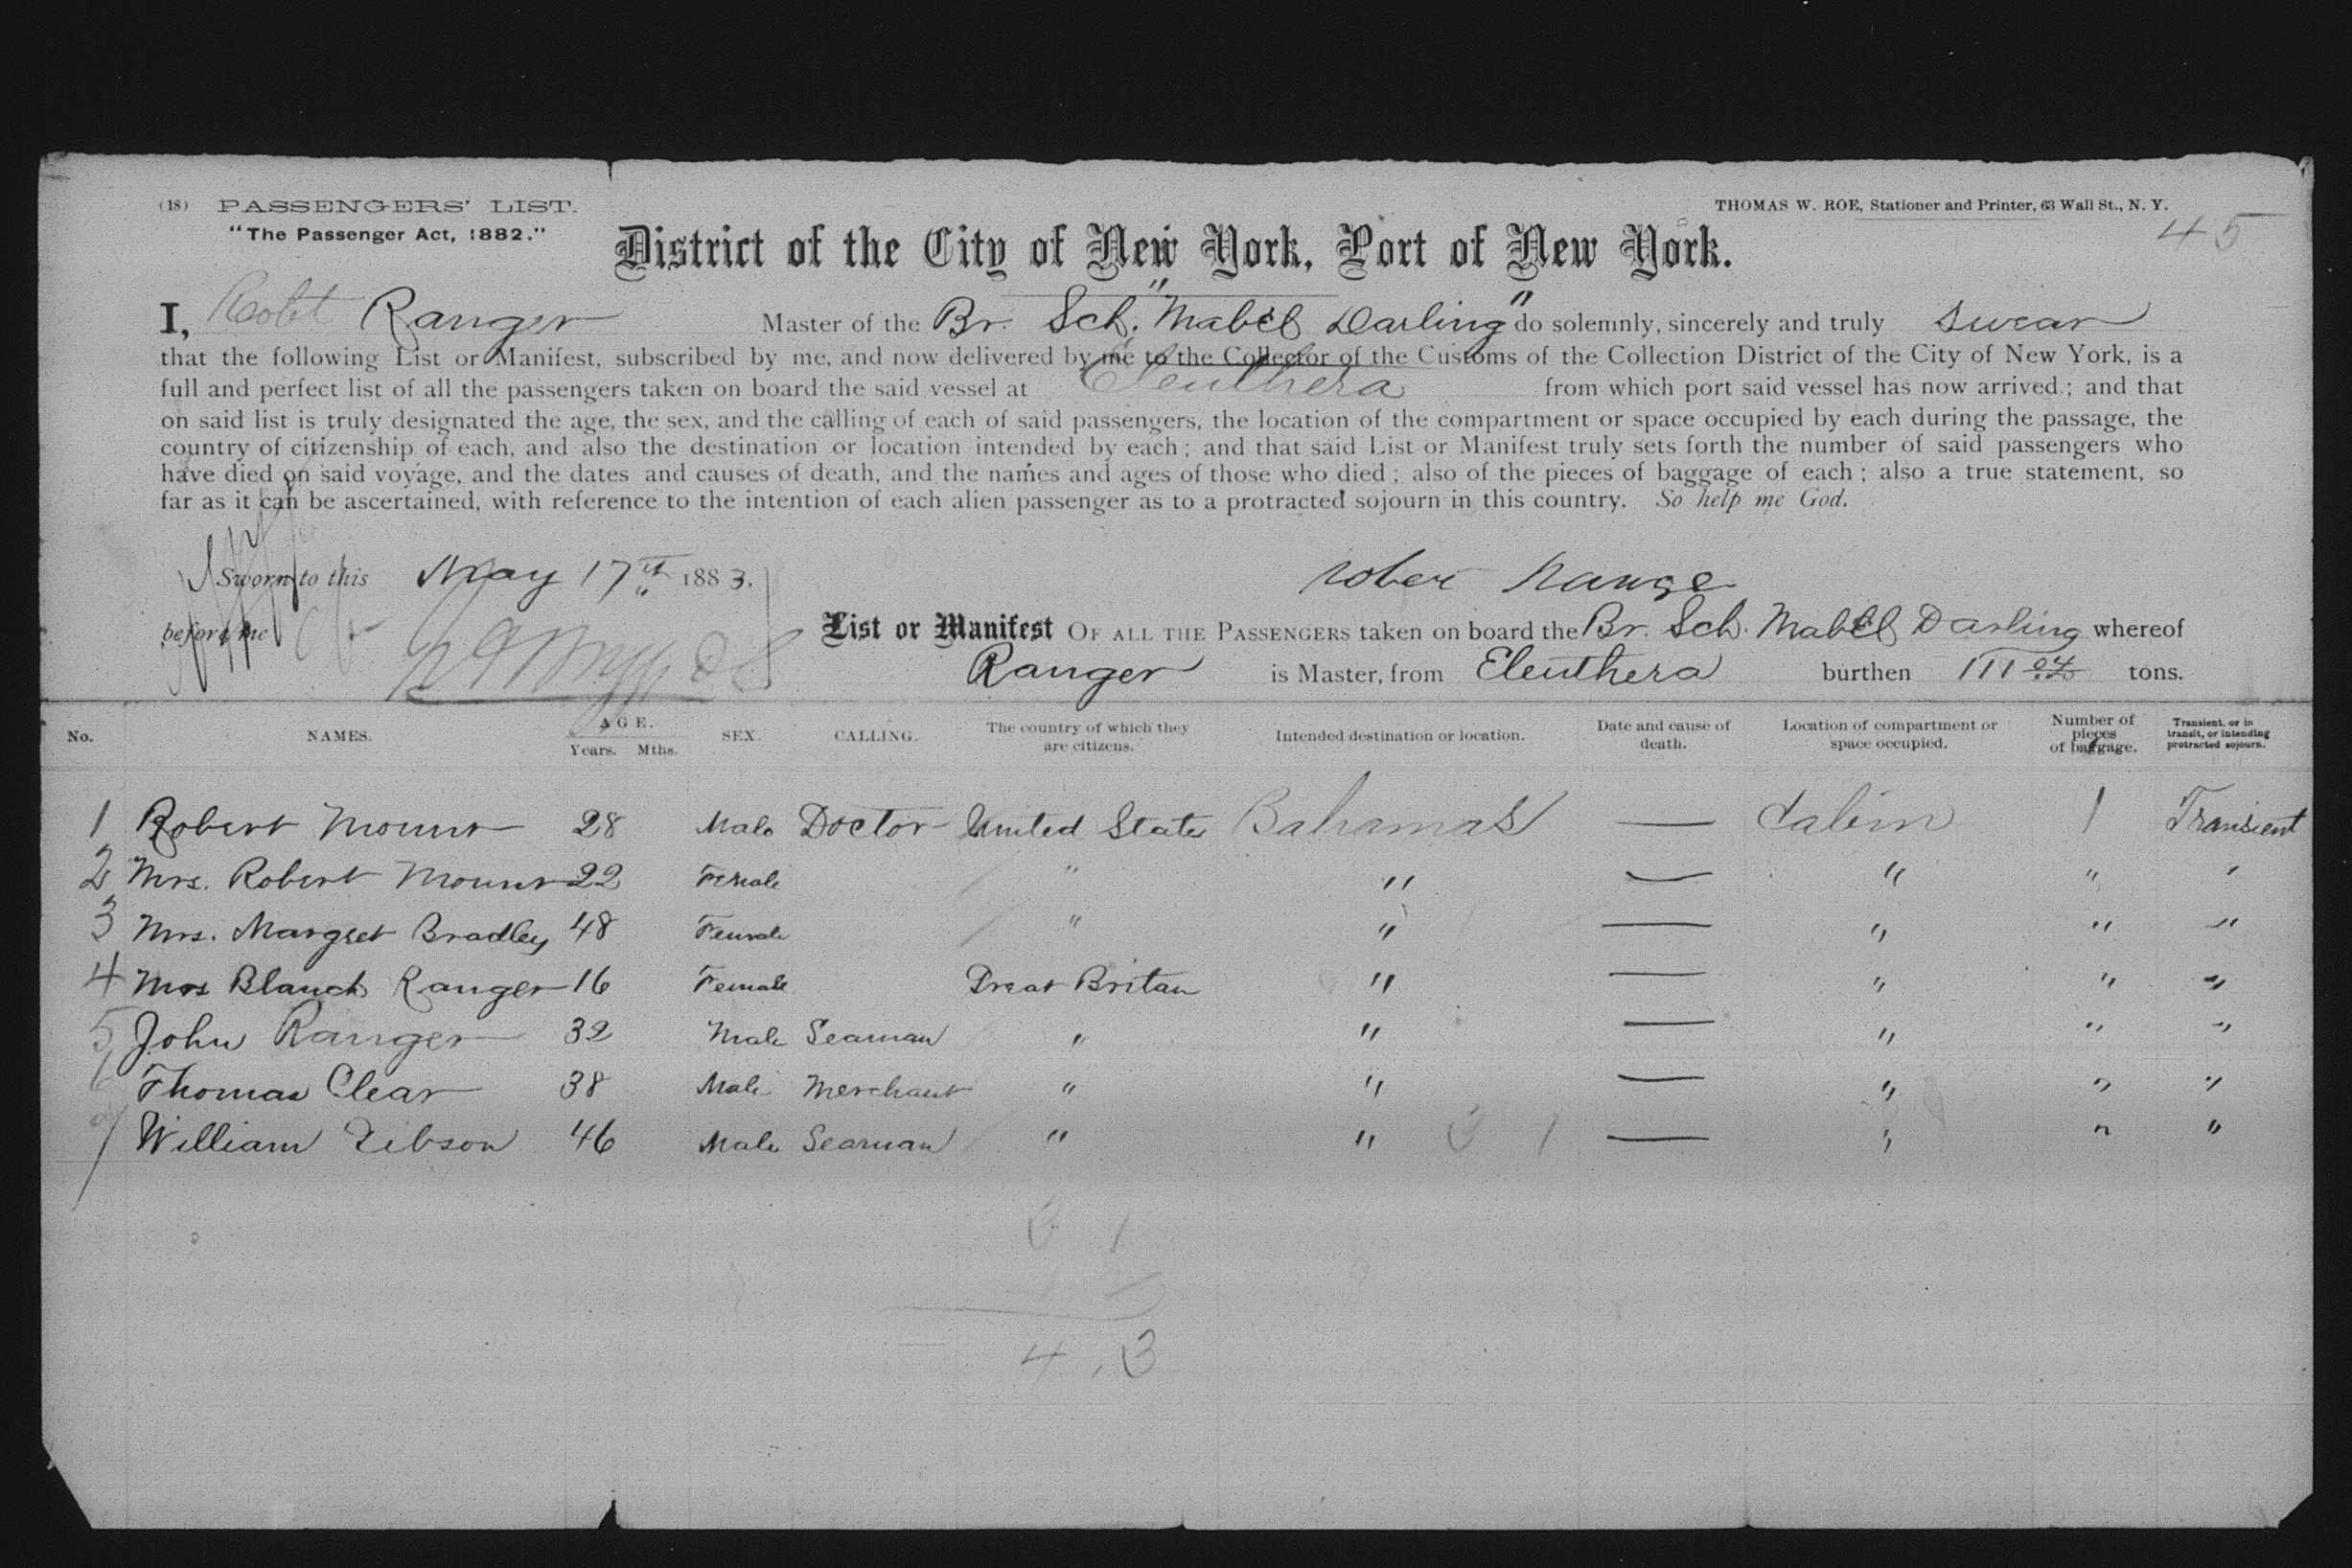 (18) PASSENGERS' LIST.
"The Passenger Act, 1882."
THOMAS W. ROE, Stationer and Printer, 63 Wall St., N. Y.
45
District of the City of New York, Port of New York.
I, Robt Ranger Master of the Br. Sch. "Mabel Darling" do solemnly, sincerely and truly swear
that the following List or Manifest, subscribed by me, and now delivered by me to the Collector of the Customs of the Collection District of the City of New York, is a
full and perfect list of all the passengers taken on board the said vessel at Eleuthera from which port said vessel has now arrived; and that
on said list is truly designated the age, the sex, and the calling of each of said passengers, the location of the compartment or space occupied by each during the passage, the
country of citizenship of each, and also the destination or location intended by each; and that said List or Manifest truly sets forth the number of said passengers who
have died on said voyage, and the dates and causes of death, and the names and ages of those who died; also of the pieces of baggage of each; also a true statement, so
far as it can be ascertained, with reference to the intention of each alien passenger as to a protracted sojourn in this country. So help me God.
Sworn to this May 17th 1883.
before me
List or Manifest OF ALL THE PASSENGERS taken on board the Br. Sch. Mabel Darling whereof
Ranger is Master, from Eleuthera burthen 111 tons.
No. NAMES. AGE. Years. Mths. SEX. CALLING. The country of which they are citizens. Intended destination or location. Date and cause of death. Location of compartment or space occupied. Number of pieces of baggage. Transient, or in transit, or intending protracted sojourn.
1 Robert Mount 28 Male Doctor United States Bahamas — Cabin 1 Transient
2 Mrs. Robert Mount 22 Female " " — " " "
3 Mrs. Margret Bradley 48 Female " " — " " "
4 Mrs Blanch Ranger 16 Female Great Britan " — " " "
5 John Ranger 32 Male Seaman " " — " " "
6 Thomas Clear 38 Male Merchant " " — " " "
7 William Gibson 46 Male Seaman " " 3 1 — " " "
3 1
4 3